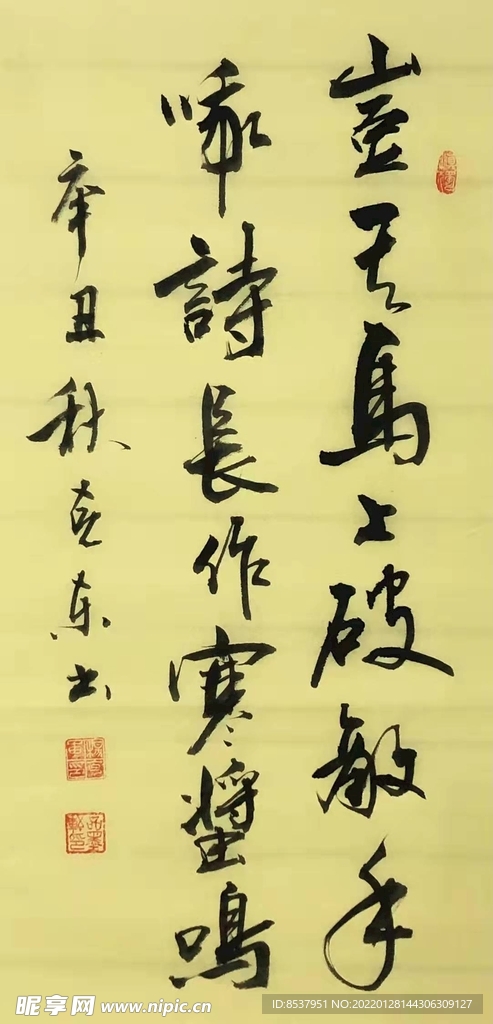 豈无馬上破敵手
哦詩長作寒螿鳴
辛丑秋克东书
昵享网 www.nipic.cn
ID:8537951 NO:20220128144306309127